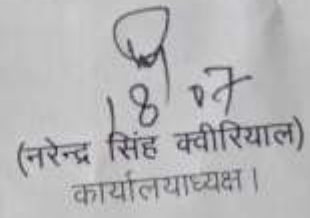 18.07
(नरेन्द्र सिंह क्वीरियाल)
कार्यालयाध्यक्ष।